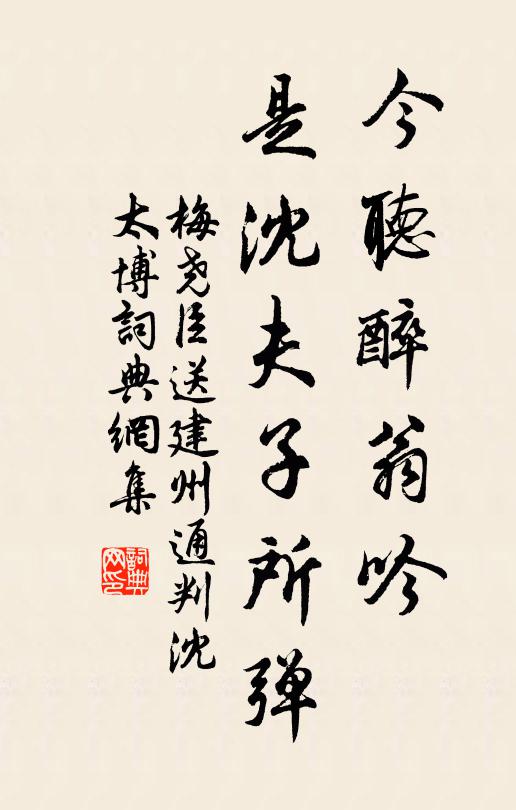 今聽醉翁吟
是沈夫子所弹
梅尧臣送建州通判沈
太博詞典網集
詞典网印